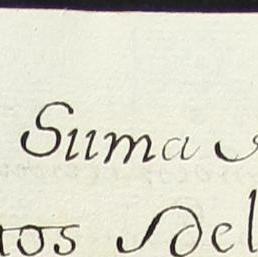 Suma
tos del